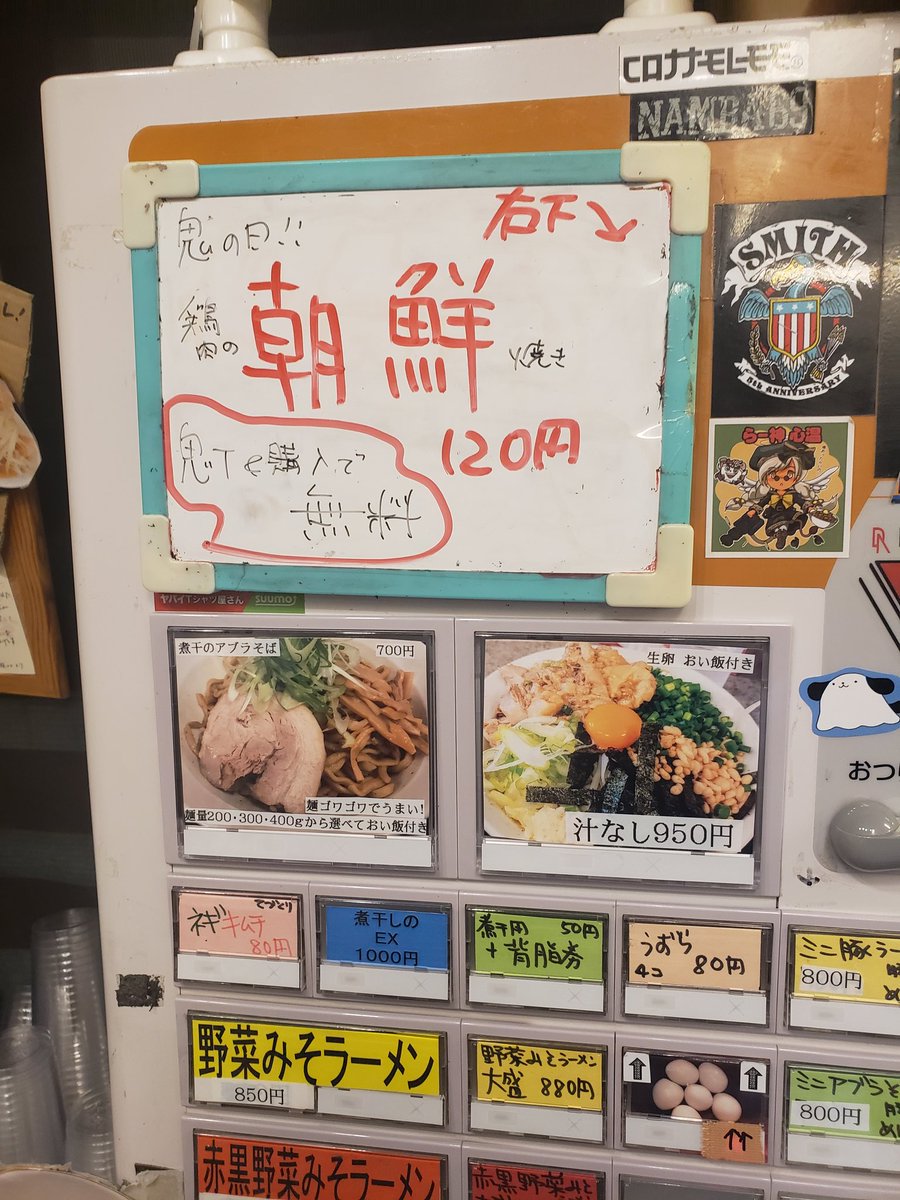 NAMBABS
右下↘
鬼の日!!
鶏肉の
朝鮮焼き
120円
鬼Tを購入で
無料
SMITH
5th ANNIVERSARY
らー神 心温
ヤバイTシャツ屋さん
suumo
煮干のアブラそば 700円
麺ゴワゴワでうまい!
麺量200・300・400gから選べておい飯付き
生卵 おい飯付き
汁なし950円
おつ
てづくり
ネギキムチ
80円
煮干しの
EX
1000円
煮干用 50円
+背脂券
うずら
4コ 80円
ミニ豚ラー
800円
野菜みそラーメン
850円
野菜みそラーメン
大盛 880円
↑ ↑
↑↑
ミニアブラそ
800円
赤黒野菜みそラーメン
赤黒野菜みそ